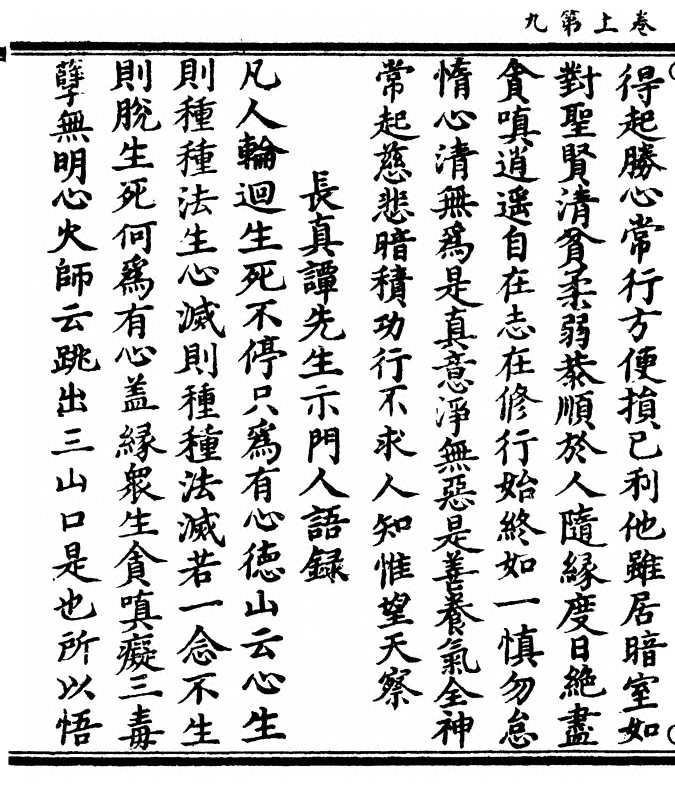 卷上第九
得起勝心常行方便損己利他雖居暗室如
對聖賢清貧柔弱恭順於人隨緣度日絶盡
貪嗔逍遥自在志在修行始終如一慎勿怠
惰心清無爲是真意淨無惡是善養氣全神
常起慈悲暗積功行不求人知惟望天察
長真譚先生示門人語録
凡人輪迴生死不停只爲有心德山云心生
則種種法生心滅則種種法滅若一念不生
則脫生死何爲有心盖緣衆生貪嗔癡三毒
孽無明心火師云跳出三山口是也所以悟